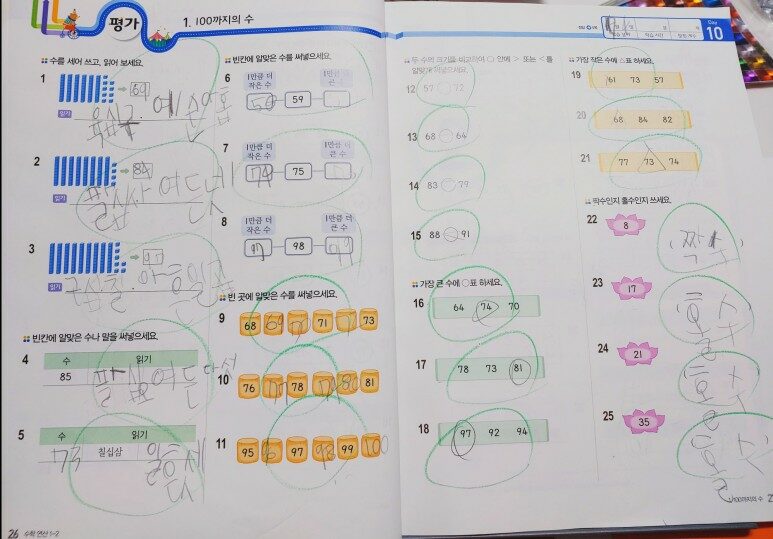 평가
1. 100까지의 수
수를 세어 쓰고, 읽어 보세요.
1
69
읽기
육십구
예순아홉
2
84
읽기
팔십사 여든넷
3
97
읽기
구십칠
빈칸에 알맞은 수나 말을 써넣으세요.
4
수 읽기
85 팔십오 여든다섯
5
수 읽기
73 칠십삼 일흔셋
빈칸에 알맞은 수를 써넣으세요.
6
1만큼 더 작은 수
1만큼 더 큰 수
59
7
1만큼 더 작은 수
1만큼 더 큰 수
74 75
8
1만큼 더 작은 수
1만큼 더 큰 수
97 98
빈 곳에 알맞은 수를 써넣으세요.
9
68 69 71 73
10
76 78 80 81
11
95 97 98 99 100
26 수학 연산 1-2
Day
10
두 수의 크기를 비교하여 ○ 안에 > 또는 < 를
알맞게 써넣으세요.
12 57 72
13 68 64
14 83 79
15 88 91
가장 큰 수에 ○표 하세요.
16 64 74 70
17 78 73 81
18 97 92 94
가장 작은 수에 △표 하세요.
19 61 73 57
20 68 84 82
21 77 73 74
짝수인지 홀수인지 쓰세요.
22 8 (짝수)
23 17 (홀수)
24 21 (홀수)
25 35 (홀수)
1. 100까지의 수